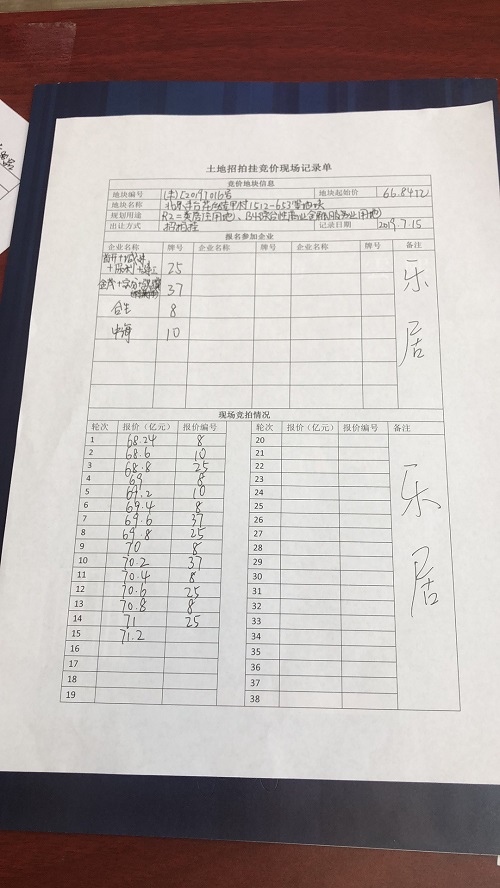 土地招拍挂竞价现场记录单
竞价地块信息
地块编号 地块起始价 66.84亿
地块名称
规划用途
出让方式 招拍挂 记录日期 2019.7.15
报名参加企业
企业名称 牌号 企业名称 牌号 企业名称 牌号 备注
25
37
合生 8
中海 10
乐
居
现场竞拍情况
轮次 报价（亿元） 报价编号 轮次 报价（亿元） 报价编号 备注
1 68.24 8 20
2 68.6 10 21
3 68.8 25 22
4 69 8 23
5 69.2 10 24
6 69.4 8 25
7 69.6 37 26
8 69.8 25 27
9 70 8 28
10 70.2 37 29
11 70.4 8 30
12 70.6 25 31
13 70.8 8 32
14 71 25 33
15 71.2 34
16 35
17 36
18 37
19 38
乐
居